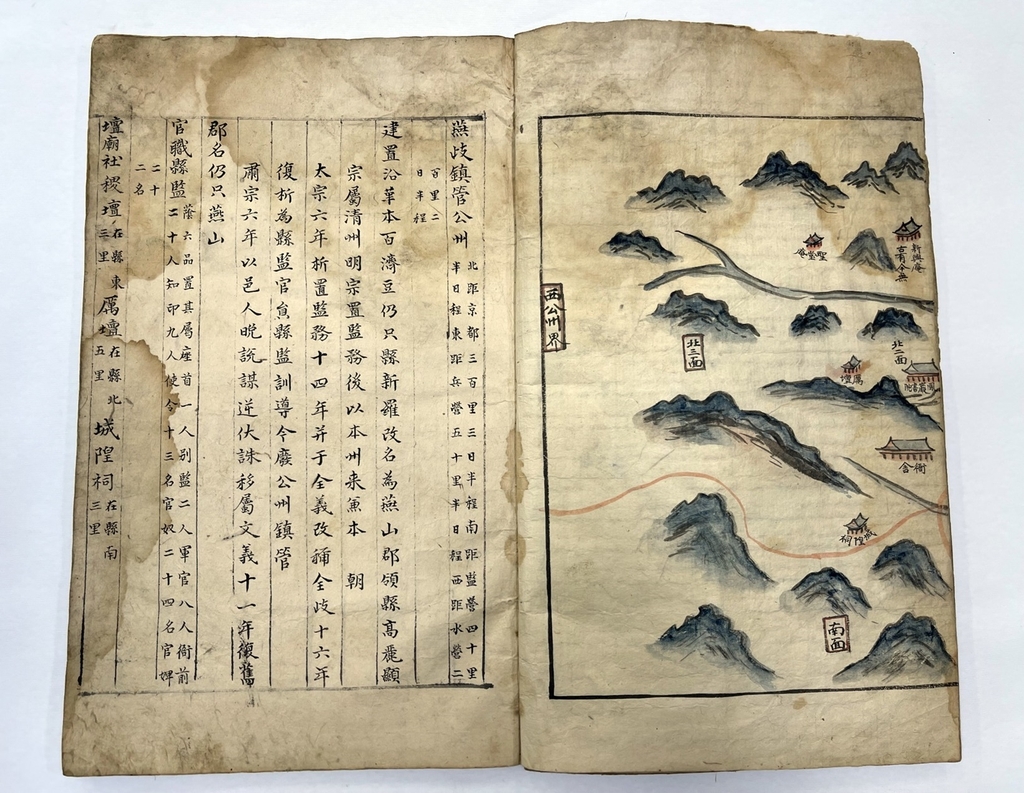 新興庵
古有今無
聖堂庵
西公州界
北三面
北二面
厲壇
鳳巖書院
衙舍
城隍祠
南面
燕歧鎮管公州 北距京都三百里三日半程南距監營四十里
半日程東距兵營五十里半日程西距水營二
百里二
日半程
建置沿革本百濟豆仍只縣新羅改名為燕山郡領縣高麗顯
宗屬清州明宗置監務後以本州來兼本 朝
太宗六年析置監務十四年并于全義改稱全歧十六年
復析為縣監官貟縣監訓導今廢公州鎮管
肅宗六年以邑人晩說謀逆伏誅移屬文義十一年復舊
郡名仍只燕山
官職縣監 蔭六品置其屬座首一人別監二人軍官八人衙前
二十人知印九人使令十三名官奴二十四名官婢
二十
二名
壇廟社稷壇 在縣東三里 厲壇 在縣北五里 城隍祠 在縣南三里